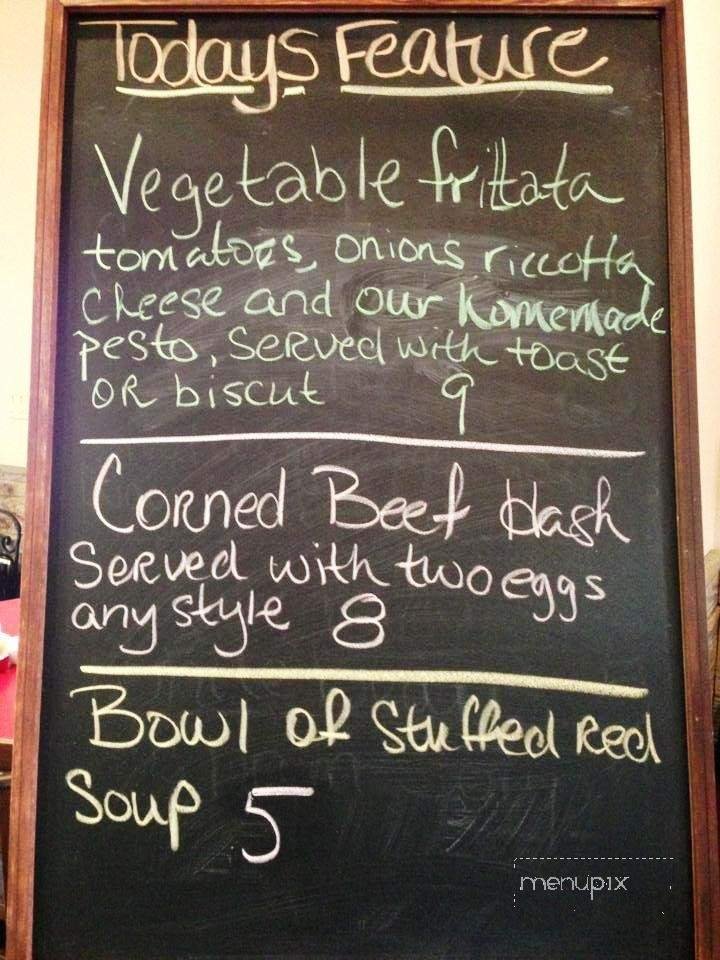 Todays Feature
Vegetable frittata
tomatoes, onions riccotta
cheese and our homemade
pesto, served with toast
OR biscut 9
Corned Beef Hash
Served with two eggs
any style 8
Bowl of Stuffed Red
Soup 5
menupix